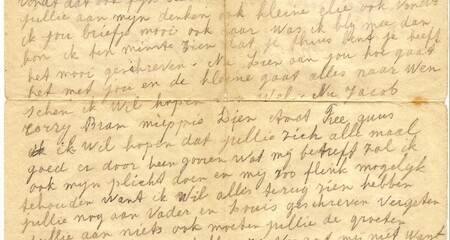 jullie aan mijn denken ook kleine
ik jou briefje mooi ook was ik bly mee dan
kon ik ten minste zien dat je thuis bent je heeft
het mooi geschreven. Nu Dien aan jou hoe gaat
het met jou en de kleine gaat alles naar Wen
schen ik wil hopen Nu Jacob
Correy Bram Dien Amat Free guus
ik wil hopen dat jullie zich alle maal
goed er door heen gooien wat mij betreft zal ik
ook mijn plicht doen en mij zoo flink mogelijk
tehouden want ik wil alles terug zien hebben
jullie nog aan Vader en Louis geschreven vergeten
jullie aan niets ook moeten jullie de groeten
mij niet want